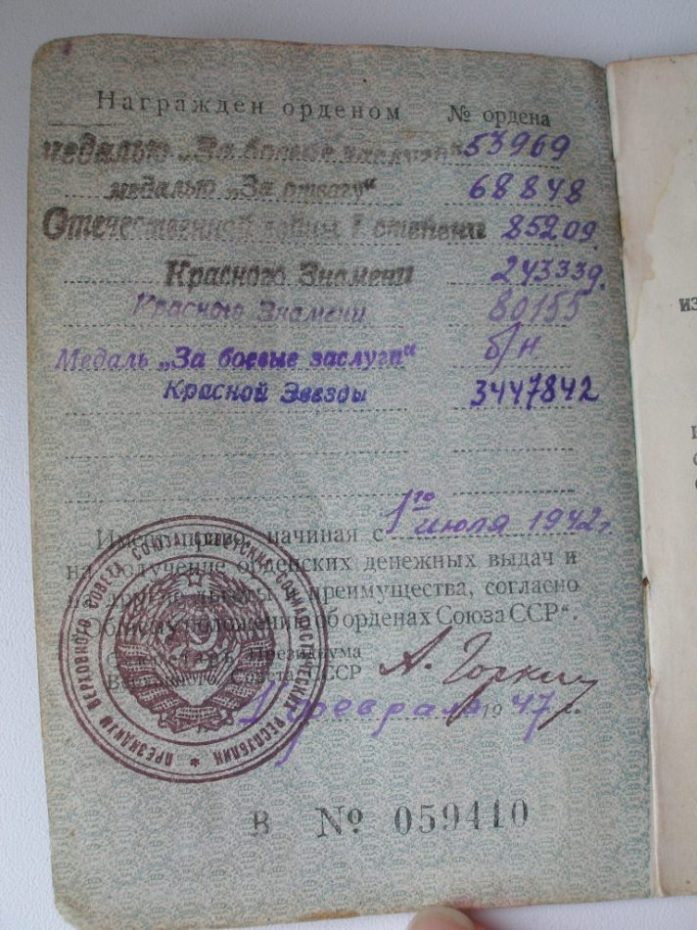 Награжден орденом № ордена
медалью „За боевые заслуги“ 53969
медалью „За отвагу“ 68848
Отечественной войны I степени 85209.
Красного Знамени 243339.
Красного Знамени 80155
Медаль „За боевые заслуги“ б/н
Красной Звезды 3447842
Имеет право, начиная с 1го июля 1942 г.
на получение орденских денежных выдач и
на другие льготы и преимущества, согласно
„Общему положению об орденах Союза ССР“.
Секретарь Президиума
Верховного Совета СССР А. Горкин
1 февраля 1947 г.
ПРЕЗИДИУМ ВЕРХОВНОГО СОВЕТА СОЮЗА СОВЕТСКИХ СОЦИАЛИСТИЧЕСКИХ РЕСПУБЛИК
В № 059410
из